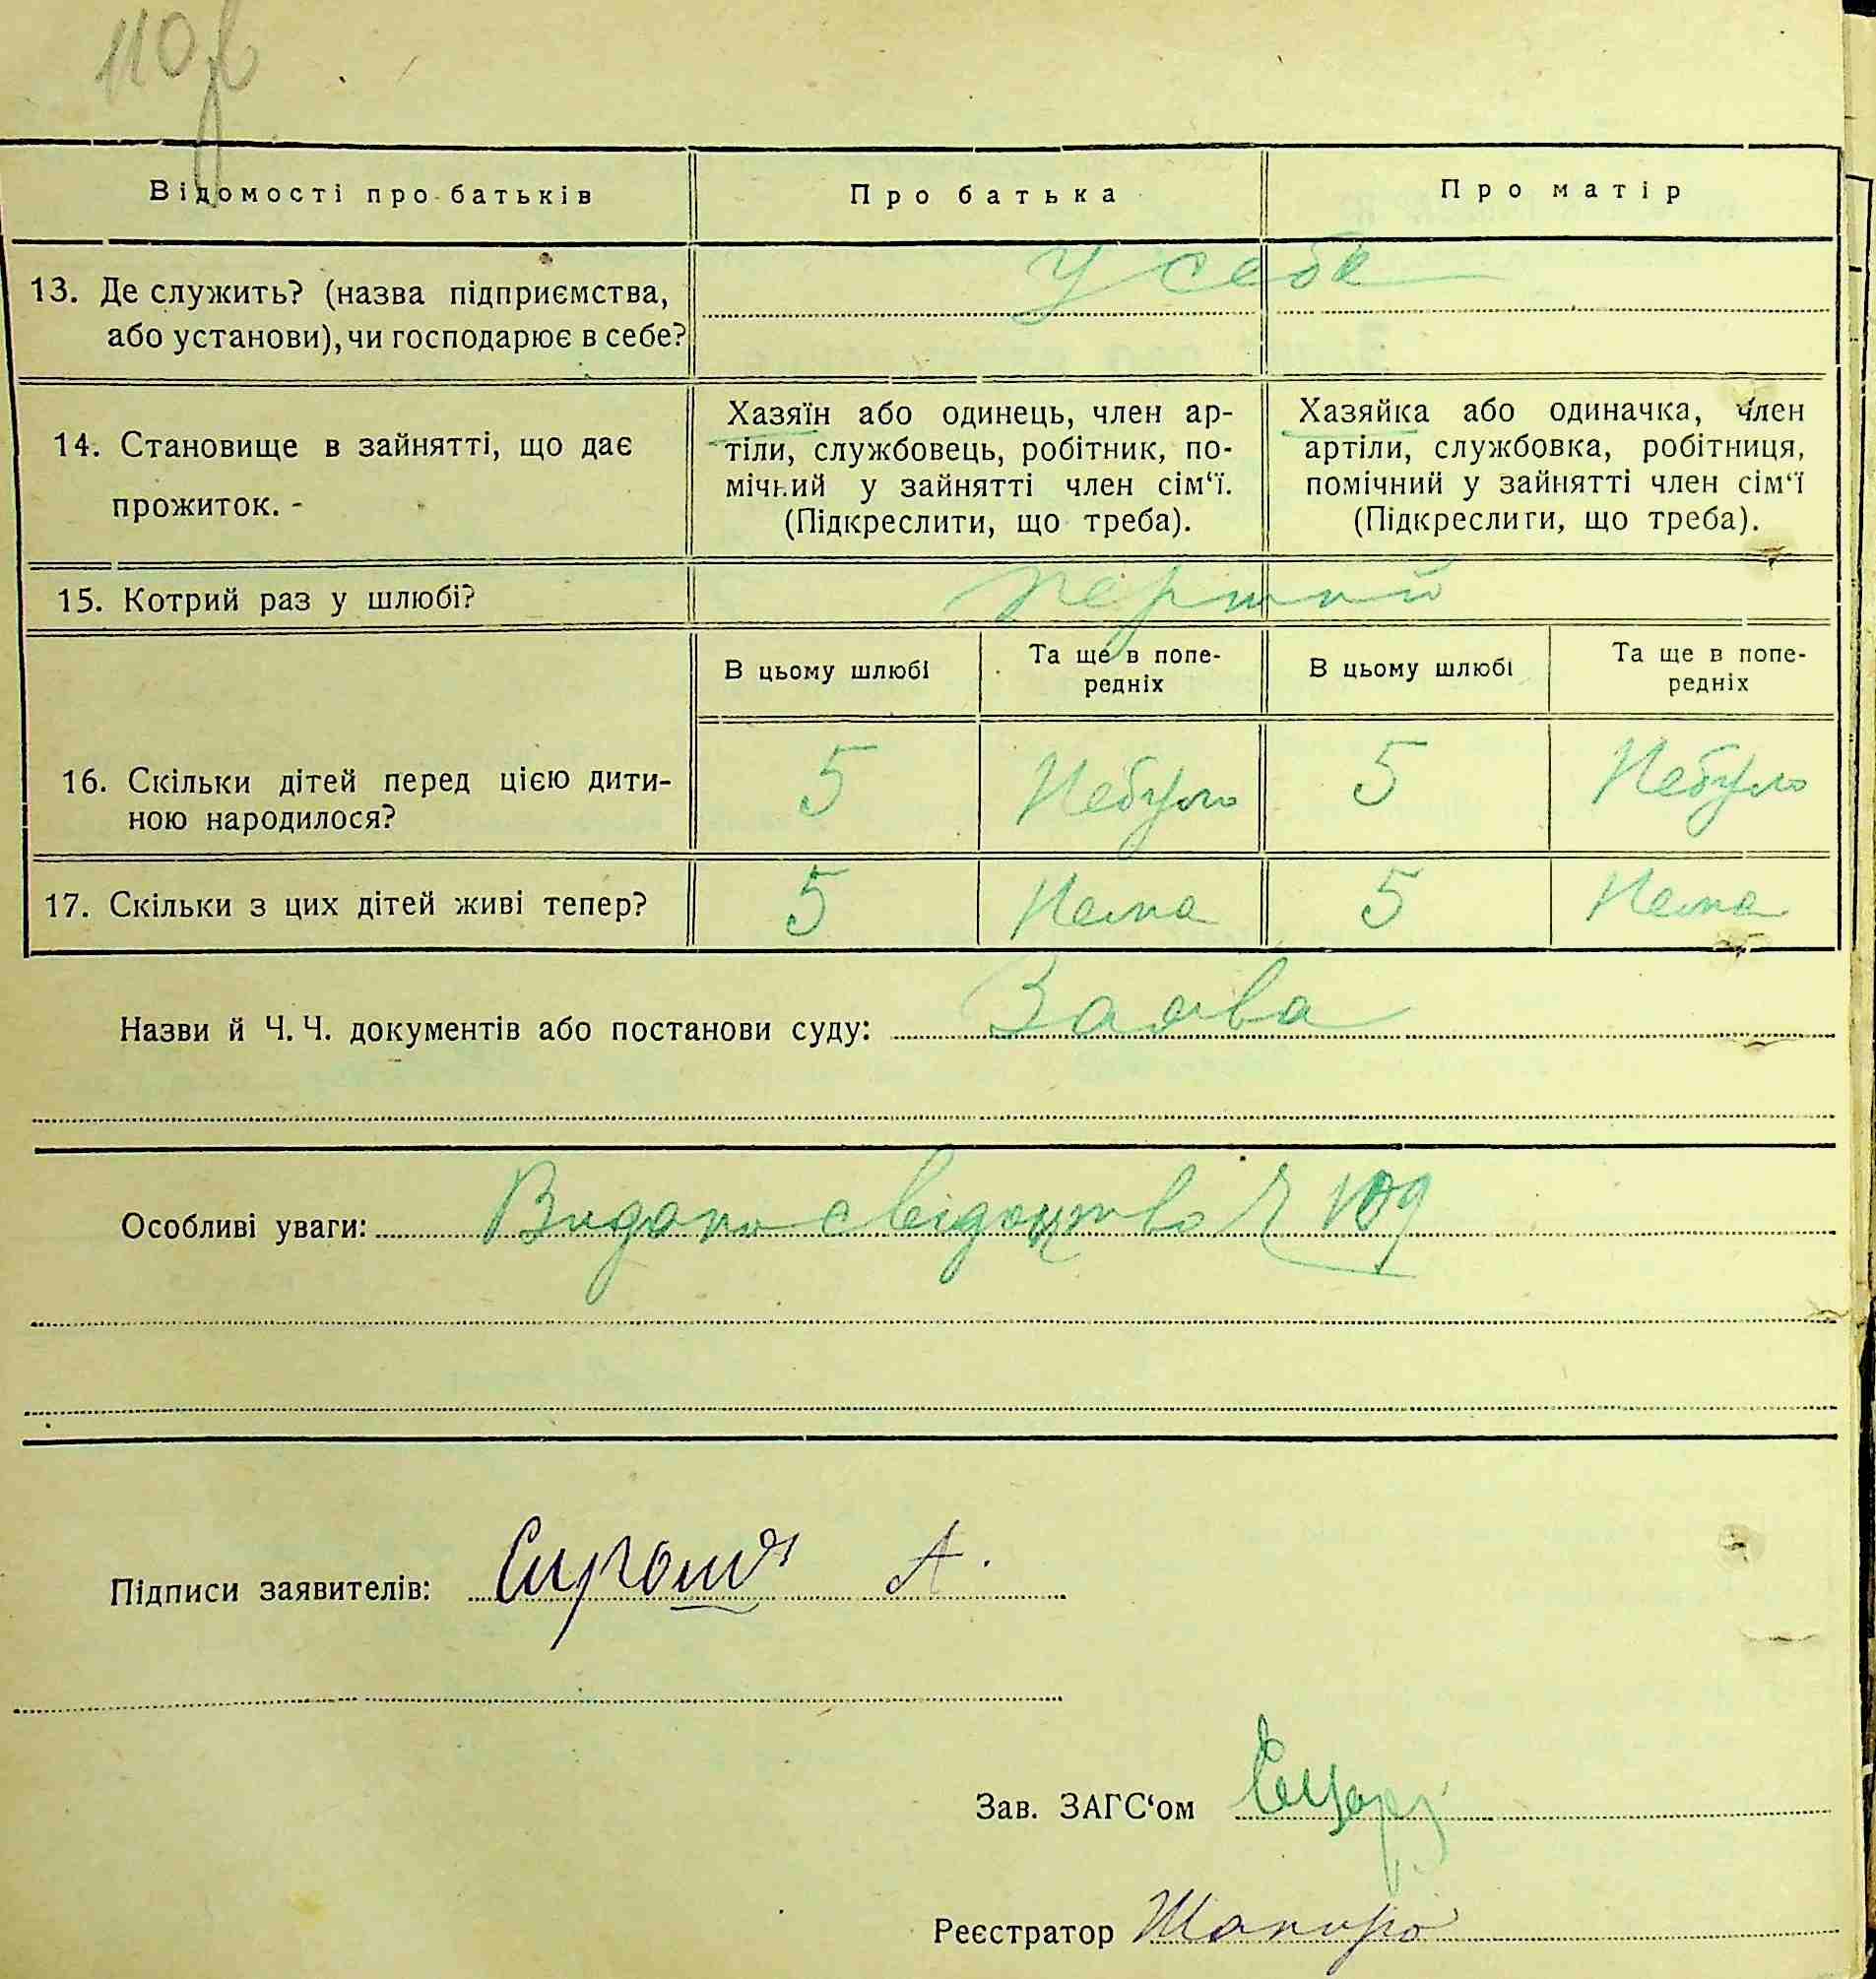 110
Відомості про батьків
Про батька
Про матір
13. Де служить? (назва підприємства,
або установи), чи господарює в себе?
У себе
14. Становище в зайнятті, що дає
прожиток. -
Хазяїн або одинець, член ар-
тіли, службовець, робітник, по-
мічний у зайнятті член сім‘ї.
(Підкреслити, що треба).
Хазяйка або одиначка, член
артіли, службовка, робітниця,
помічний у зайнятті член сім‘ї
(Підкреслити, що треба).
15. Котрий раз у шлюбі?
перший
В цьому шлюбі
Та ще в попе-
редніх
В цьому шлюбі
Та ще в попе-
редніх
16. Скільки дітей перед цією дити-
ною народилося?
5
Небуло
5
Небуло
17. Скільки з цих дітей живі тепер?
5
Нема
5
Нема
Назви й Ч. Ч. документів або постанови суду: Заява
Особливі уваги: Видано свідоцтво Ч 109
Підписи заявителів: А.
Зав. ЗАГС‘ом
Реєстратор Шапиро